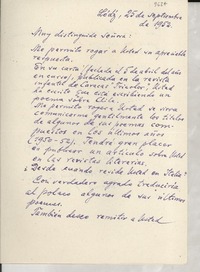 Łódź, 25 de septiembre
de 1952.
Muy distinguida Señora:
Me permito rogar a Usted su apreciable
respuesta.
En su carta fechada el 5 de abril del año
en curso, publicada en la revista
infantil de Caracas "Tricolor", Usted
ha escrito que está escribiendo un
poema sobre Chile.
Me permito rogar a Usted se sirva
comunicarme gentilmente los
títulos de algunos de sus poemas com-
puestos en los últimos años
(1950-52). Tendré gran placer
en publicar un artículo sobre Usted
en las revistas literarias.
¿Desde cuándo reside Usted en Italia?
Con verdadero agrado traduciría
al polaco algunos de sus últimos
poemas.
También deseo remitir a Usted